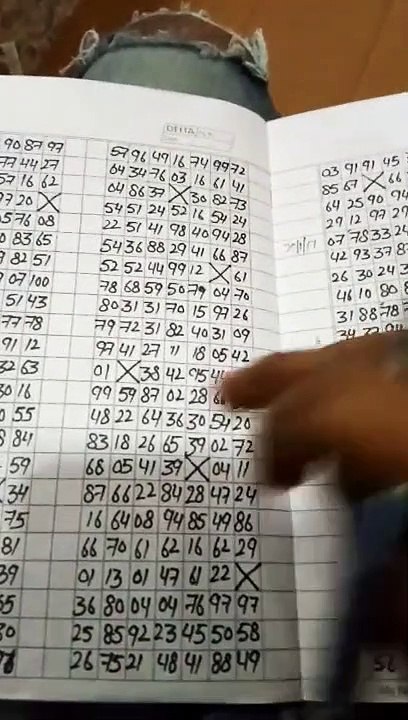 90 87 97
77 44 27
57 16 62
97 20 X
05 76 08
0 83 65
9 82 51
07 100
51 43
77 78
91 12
32 63
30 16
0 55
8 84
59
34
75
81
39
57 96 49 16 74 99 72
04 34 76 03 16 61 41
04 86 37 X 30 82 73
54 51 24 52 16 54 24
22 51 41 98 40 94 28
54 36 88 29 41 66 87
52 52 44 99 12 X 61
78 68 59 50 79 04 70
80 31 31 70 15 97 26
79 72 31 82 40 31 09
97 41 27 11 18 05 42
01 X 38 42 95
99 59 87 02 28
48 22 64 36 30 54 20
83 18 26 65 39 02 72
68 05 41 39 X 04 11
87 66 22 84 28 47 24
16 64 08 94 85 49 86
66 70 61 62 16 62 29
01 13 01 47 61 22 X
36 80 04 04 76 97 97
25 85 92 23 45 50 58
26 75 21 48 41 88 49
03 91 91 45
85 67 X 66
64 25 90 94
29 12 97 29
07 78 33 24
42 93 37 8
26 30 24 3
46 10 80 8
31 88 78